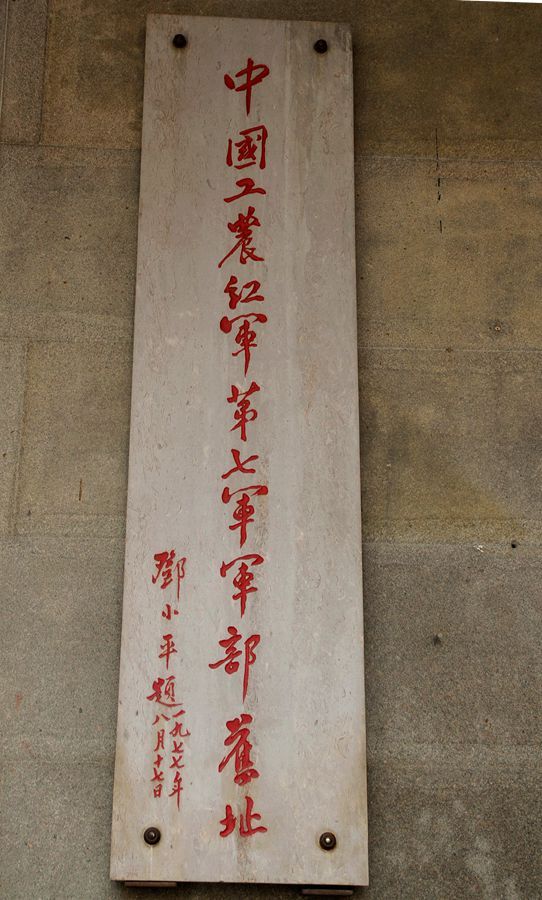 中國工農红軍第七軍軍部舊址
鄧小平題
一九七七年
八月十七日